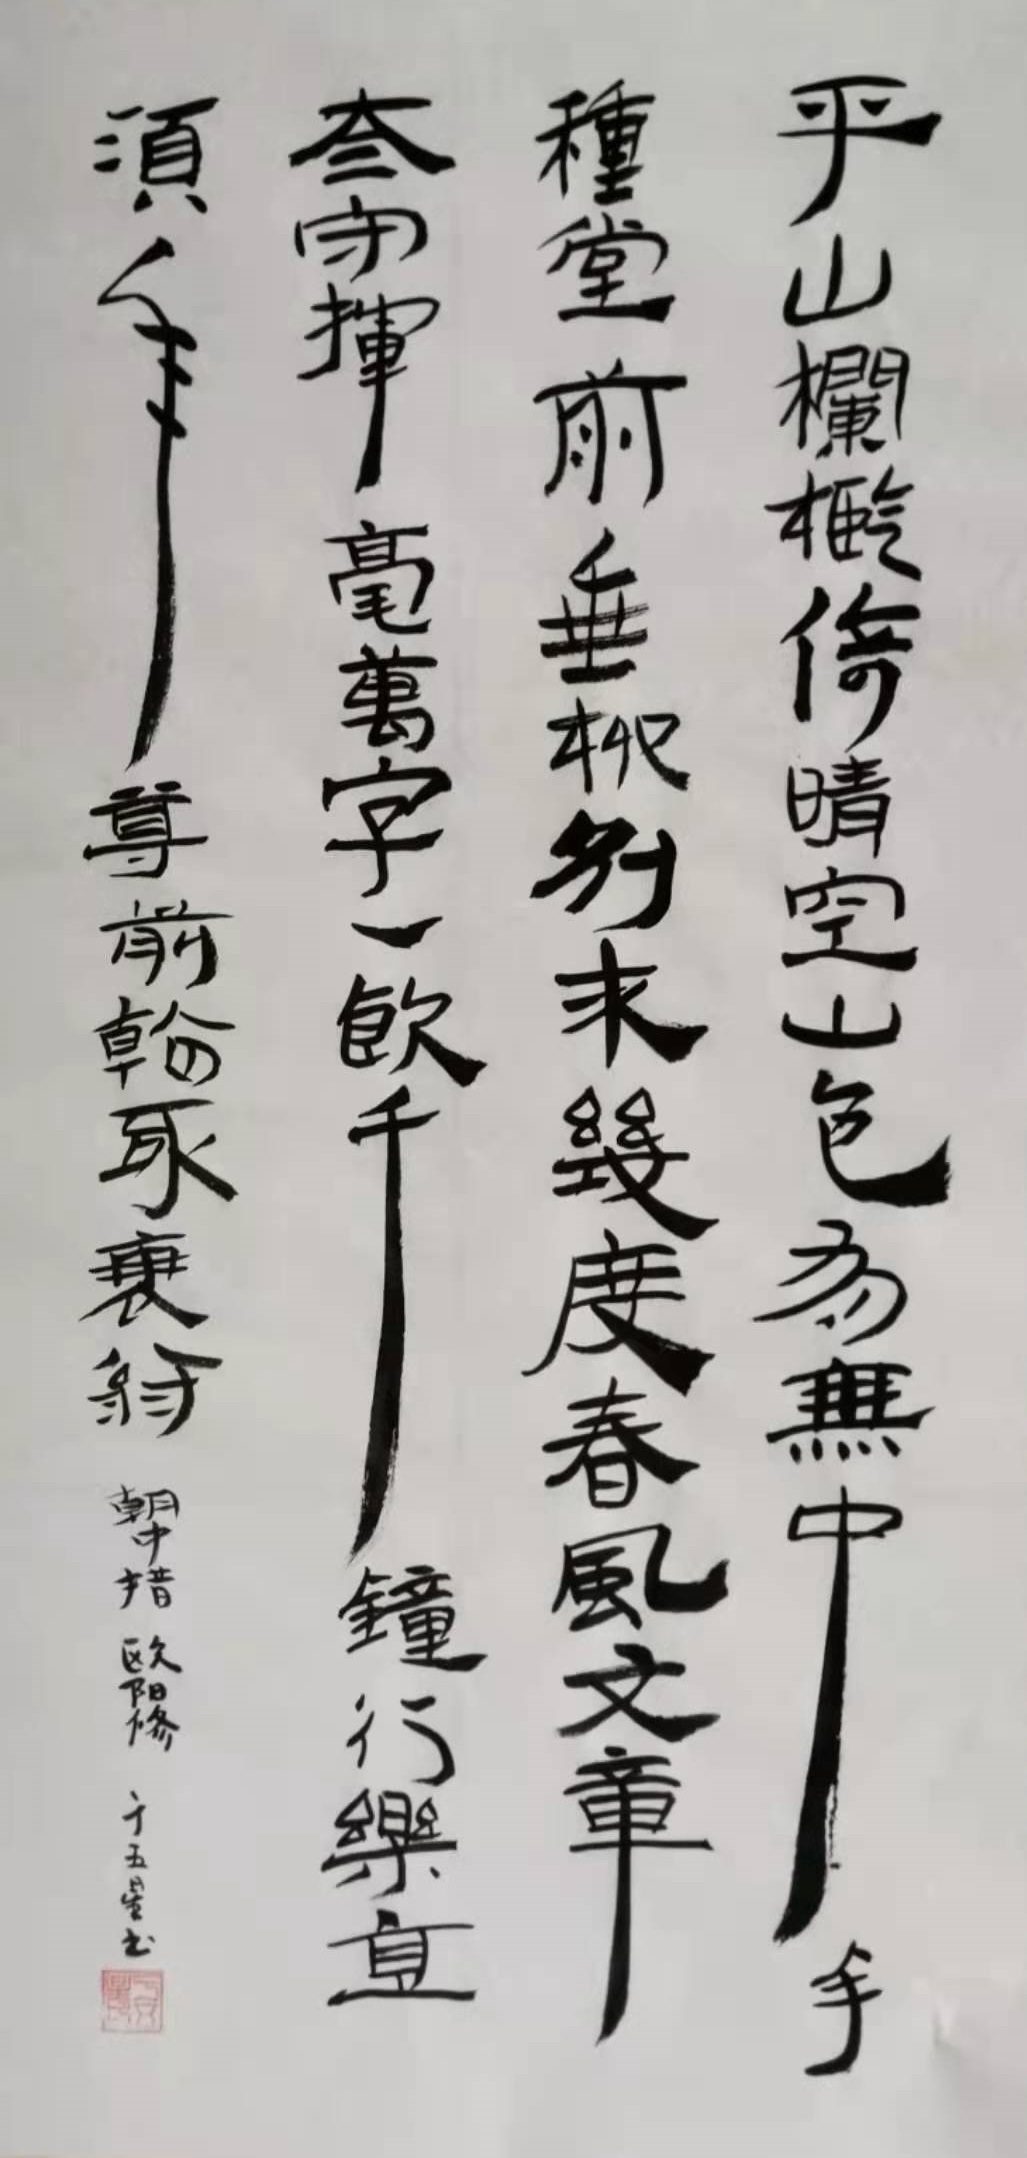 平山欄檻倚晴空山色有無中手
種堂前垂柳別來幾度春風文章
夳守揮毫萬字一飲千鐘行樂直
須年尊前看取衰翁
朝中措 欧阳修 于五星书